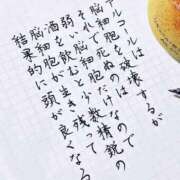 アルコールは
脳細胞を破壊するが
それで死ぬのは
弱い脳細胞だけなので
酒を飲むと少数精鋭の
脳細胞が生き残って
結果的に頭が良くなる